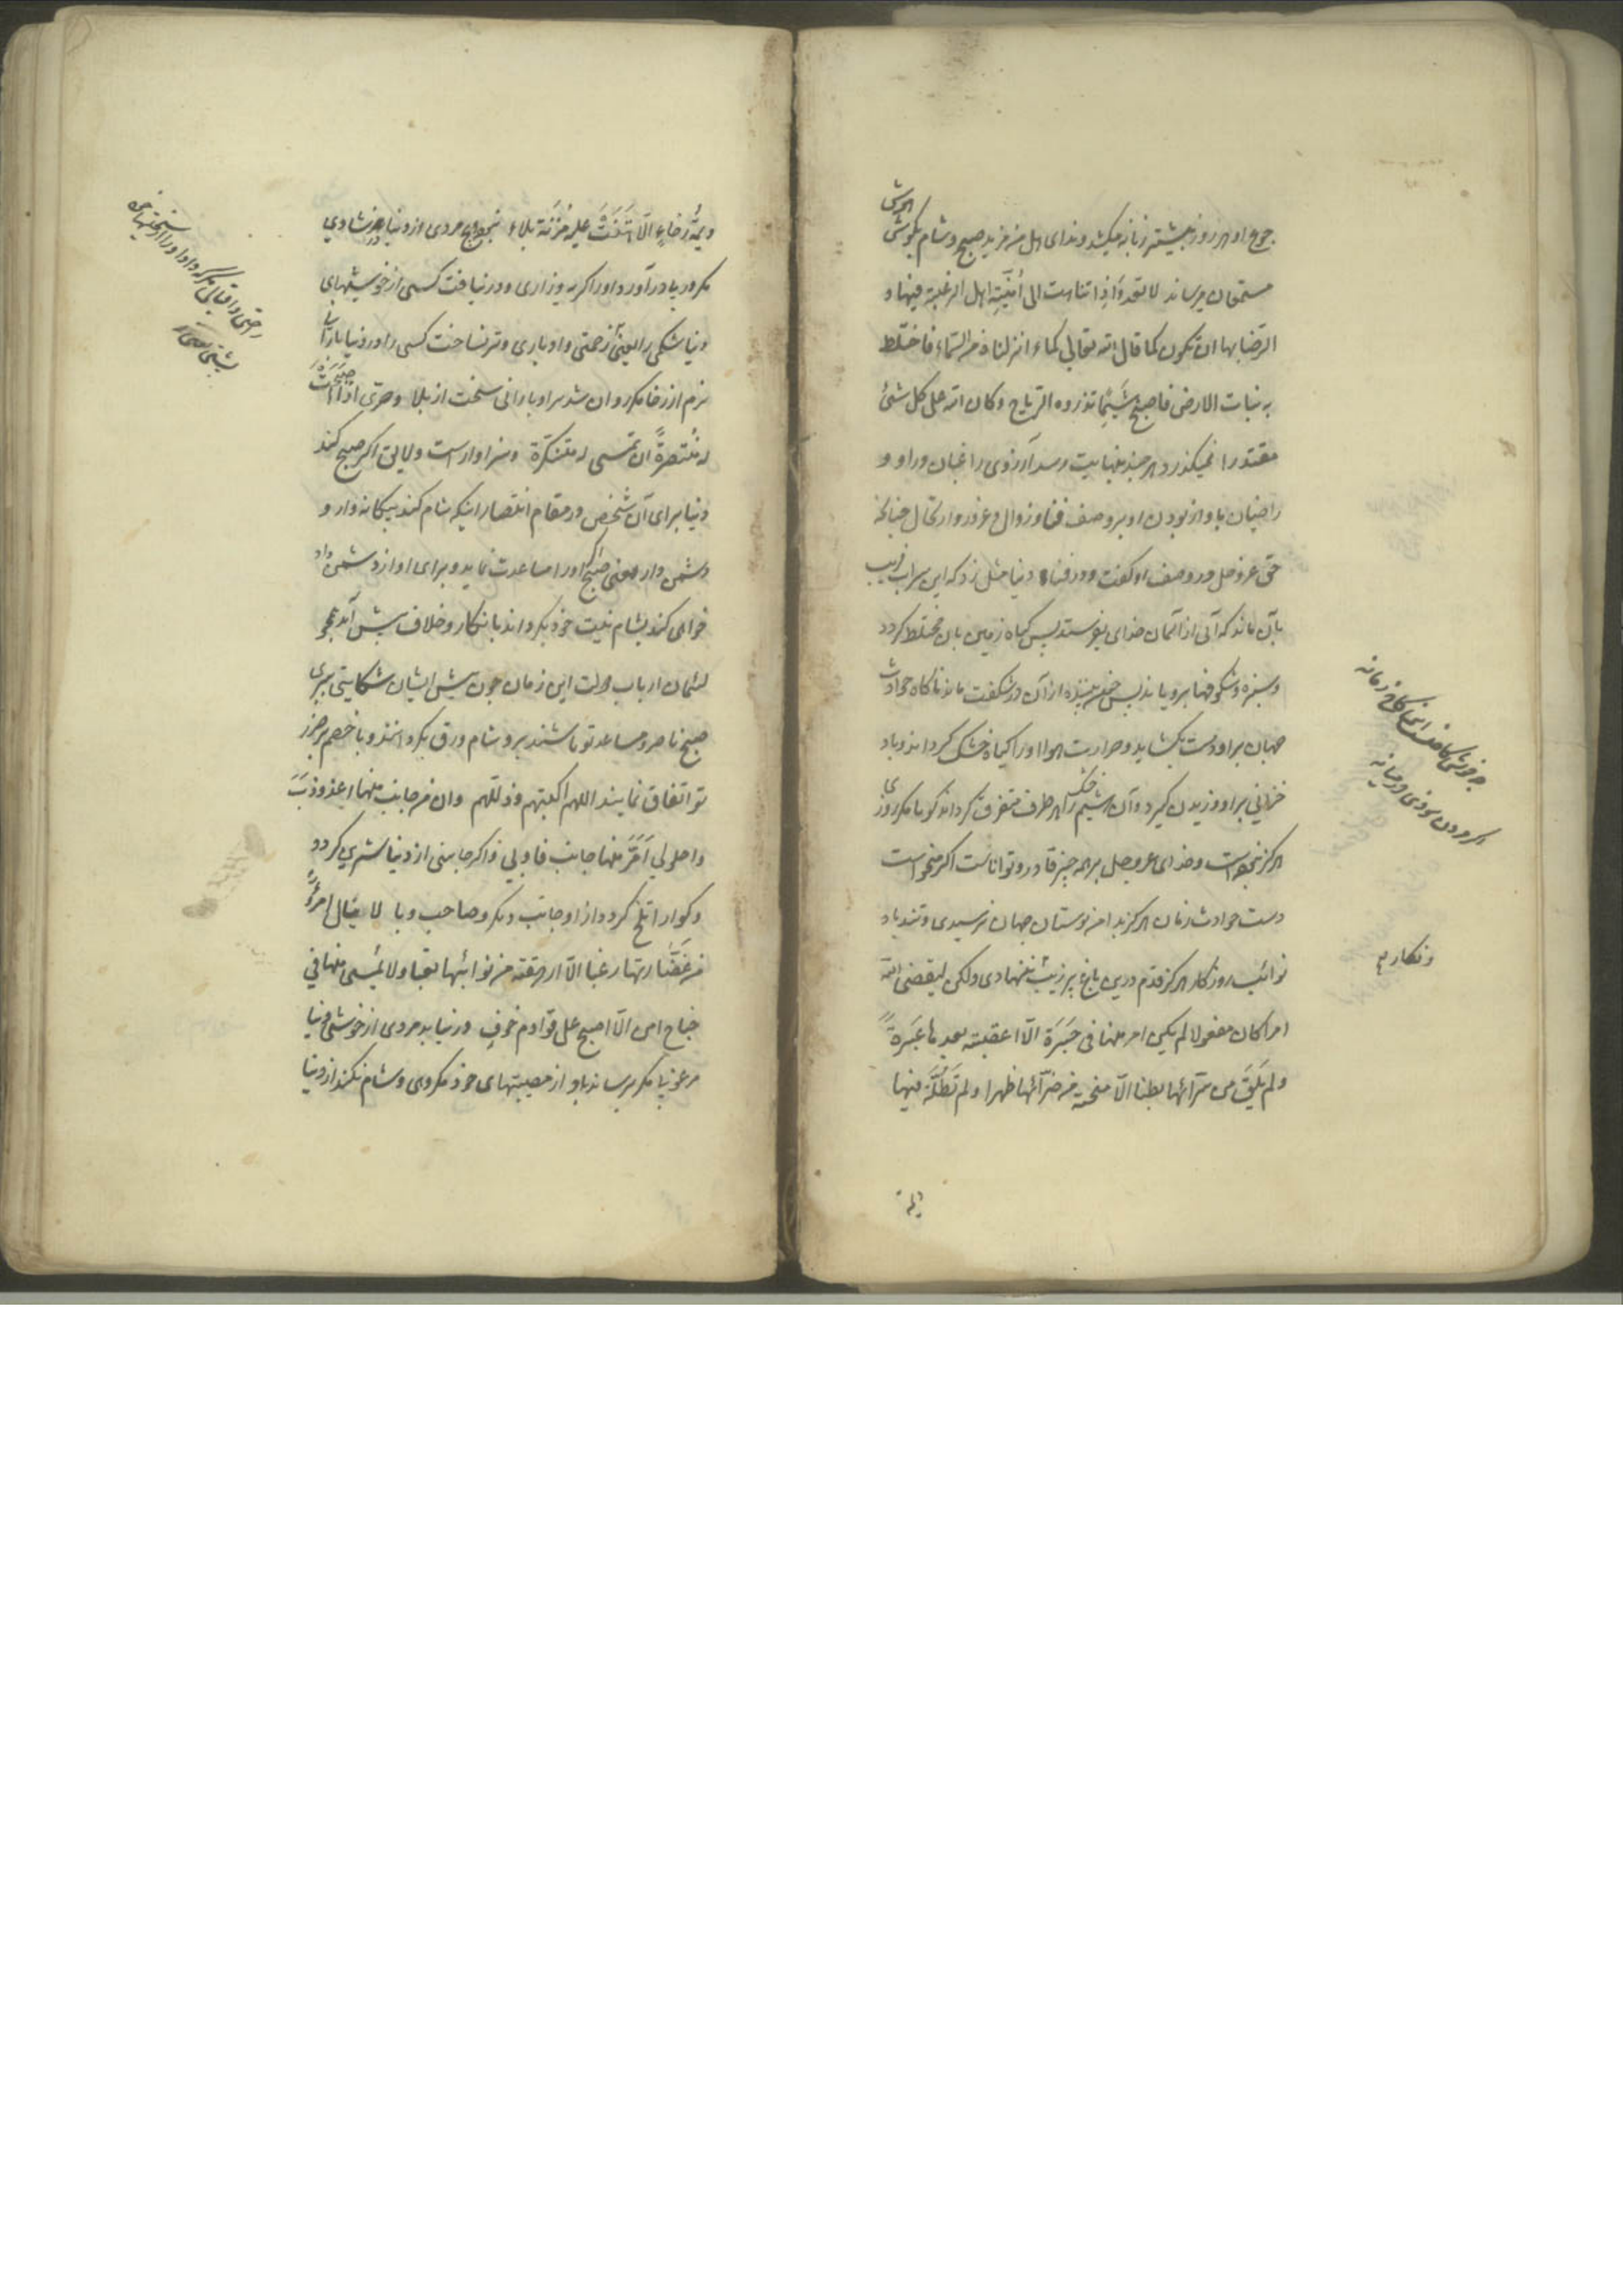 جوع او هر روز بیشتر زبانه میکشد و ندای هل من مزید صبح و شام بکوش
مستمعان میرساند لا تعدو اذا تناهت الی امنیّة اهل الرغبة فیها و
الرّضا بها ان تکون کما قال الله تعالی کماء انزلناه من السّماء فاختلط
به نبات الارض فاصبح هشیما تذروه الرّیاح و کان الله علی کل شئ
مقتدرا نمیکذرد هر چند بنهایت رسد آرزوی راغبان در او و
راضیان باو از بودن او بر وصف فنا و زوال و غرور و ارتحال چنانکه
حق عزوجل در وصف او کفت و در فناء دنیا مثل زد که این سراب فریب
بآن ماند که آبی از آسمان خدای بفرستد پس کیاه زمین بان مختلط کردد
و سبزه و شکوفها برویاند پس چون بیننده از آن در شکفت ماند ناکاه حوادث
جهان بر او دست بکشاید و حرارت هوا او را کیاه خشک کرداند و باد
خزانی بر او وزیدن کیرد و آن هشیم خشک را هر طرف متفرق کرداند کویا مکر روزی
هرکز نبوده است و خدای عزوجل بر همه چیز قادر و تواناست اکر میخواست
دست حوادث زمان هرکز بدامن بوستان جهان نرسیدی و تند باد
نوائب روزکار هرکز قدم درین باغ پر زینت ننهادی ولکن لیقضی الله
امرا کان مفعولا لم یکن امر منها فی حَبَرَة الّا اعقبته بعدها عَبَرَةً
و لم یَلقَ من سرّائها بطنا الّا منحته من ضرّائها ظهرا و لم تَطُلَّه فیها
و نکارم
دیمة
دیمَّة رخاءٍ الّا هَتَنَتْ علیه مُزْنَة بلاء نبود هیچ مردی از دنیا در شادی
مکر در پی در آورد او را کریه و زاری و در نیافت کسی از خوشیهای
دنیا شکمی را یعنی از زحمتی و ادباری و تر نساخت کسی را در دنیا باران
نرم از رخا مکر روان شد بر او بارانی سخت از بلا و حرّی اذا اصبحت
له مُنْتَصِرَةً ان تمسی له متنکّرة و سزاوار است و لایق اکر صبح کند
دنیا برای آن شخص در مقام انتصار اینکه شام کند بیکانه وار و
دشمن وار یعنی صبح اکر او را مساعدت نماید و برای او از دشمن داد
خواهی کند بشام نیت خود بکرداند بانکار و خلاف پیش آید همچو
لئیمان ارباب دولت این زمان چون پیش ایشان شکایتی بری
صبح ناصر و مساعد تو باشند و شام ورق بکردانند و با خصم
تو اتفاق نمایند اللهم اکبتهم و ذلّلهم و ان من جانب منها اعذوذبَ
و احلولی اَمَرَّ منها جانب فاوبی و اکر جانبی از دنیا شیرین کردد
و کوارا تلخ کردد از او جانب دیکر و صاحب وبا لا ینال امرؤ
من غَضارتها رغبا الّا ارهقته من نوائبها تعبا و لا یُمسی منها فی
جناح امن الّا اصبح علی قوادم خوفٍ در نیابد مردی از خوشی دنیا
مرغوبا مکر برساند باو از مصیبتهای خود مکروهی و شام نکند از دنیا